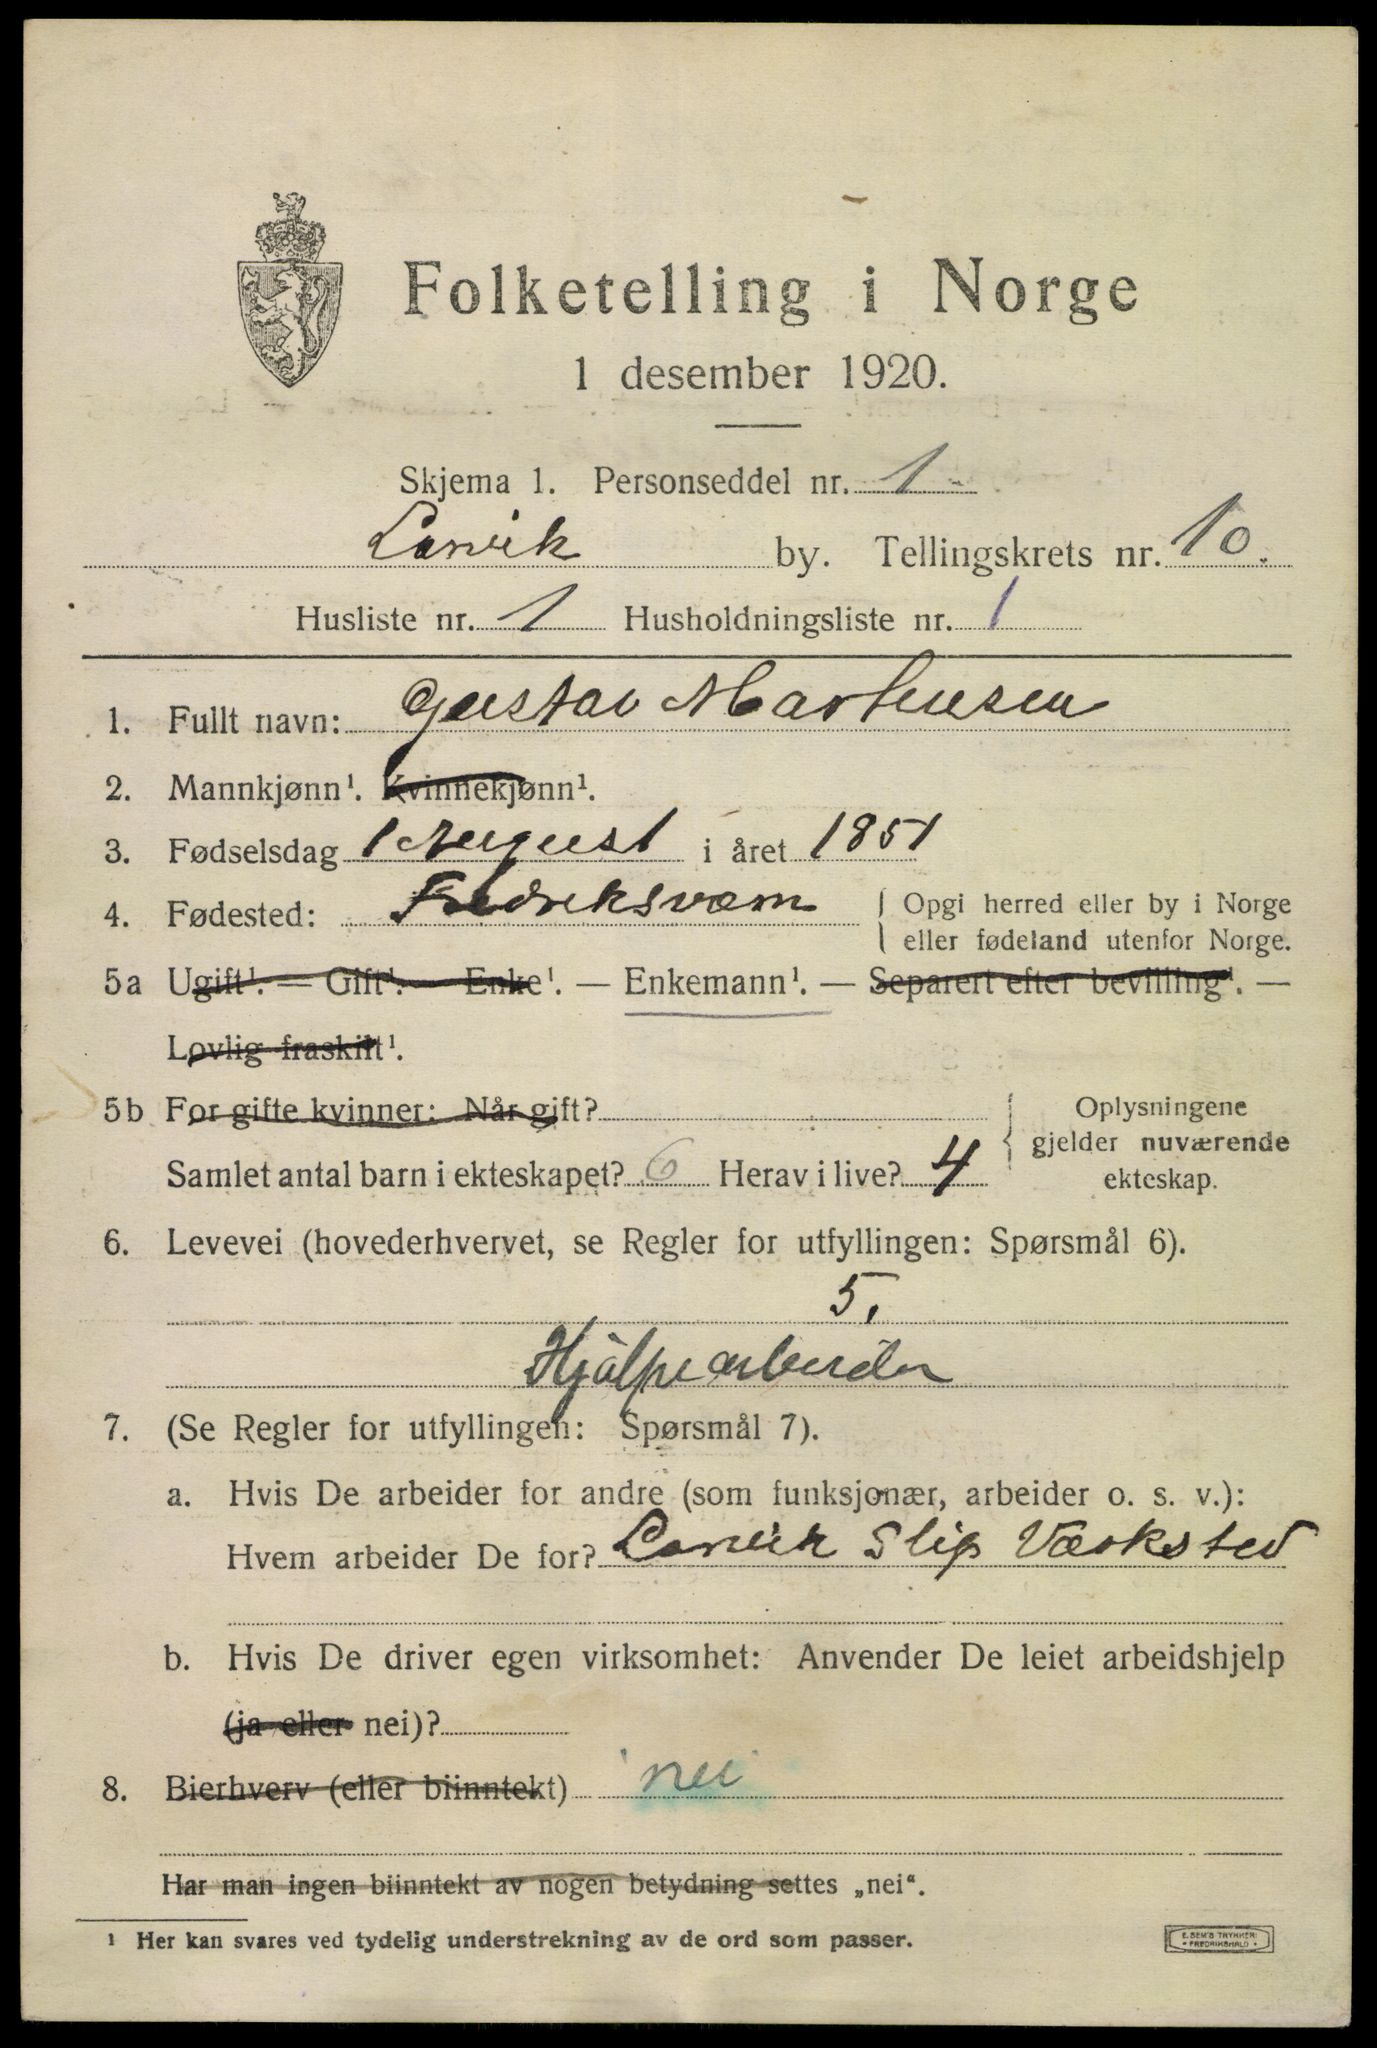 Folketelling i Norge
1 desember 1920.
Skjema 1. Personseddel nr. 1
Larvik by. Tellingskrets nr. 10.
Husliste nr. 1 Husholdningsliste nr. 1
1. Fullt navn: Gustav Martensen
2. Mannkjønn¹. Kvinnekjønn¹.
3. Fødselsdag 1 August i året 1851
4. Fødested: Fredriksværn { Opgi herred eller by i Norge
eller fødeland utenfor Norge.
5a Ugift¹. — Gift¹. — Enke¹. — Enkemann¹. — Separert efter bevilling¹. —
Lovlig fraskilt¹.
5b For gifte kvinner: Når gift? { Oplysningene
gjelder nuværende
Samlet antal barn i ekteskapet? 6 Herav i live? 4 ekteskap.
6. Levevei (hovederhvervet, se Regler for utfyllingen: Spørsmål 6).
5.
Hjälpearbeider
7. (Se Regler for utfyllingen: Spørsmål 7).
a. Hvis De arbeider for andre (som funksjonær, arbeider o. s. v.):
Hvem arbeider De for? Larvik Slip Værksted
b. Hvis De driver egen virksomhet: Anvender De leiet arbeidshjelp
(ja eller nei)?
8. Bierhverv (eller biinntekt) nei
Har man ingen biinntekt av nogen betydning settes „nei“.
¹ Her kan svares ved tydelig understrekning av de ord som passer.
E. SEM'S TRYKKERI
• FREDRIKSHALD •